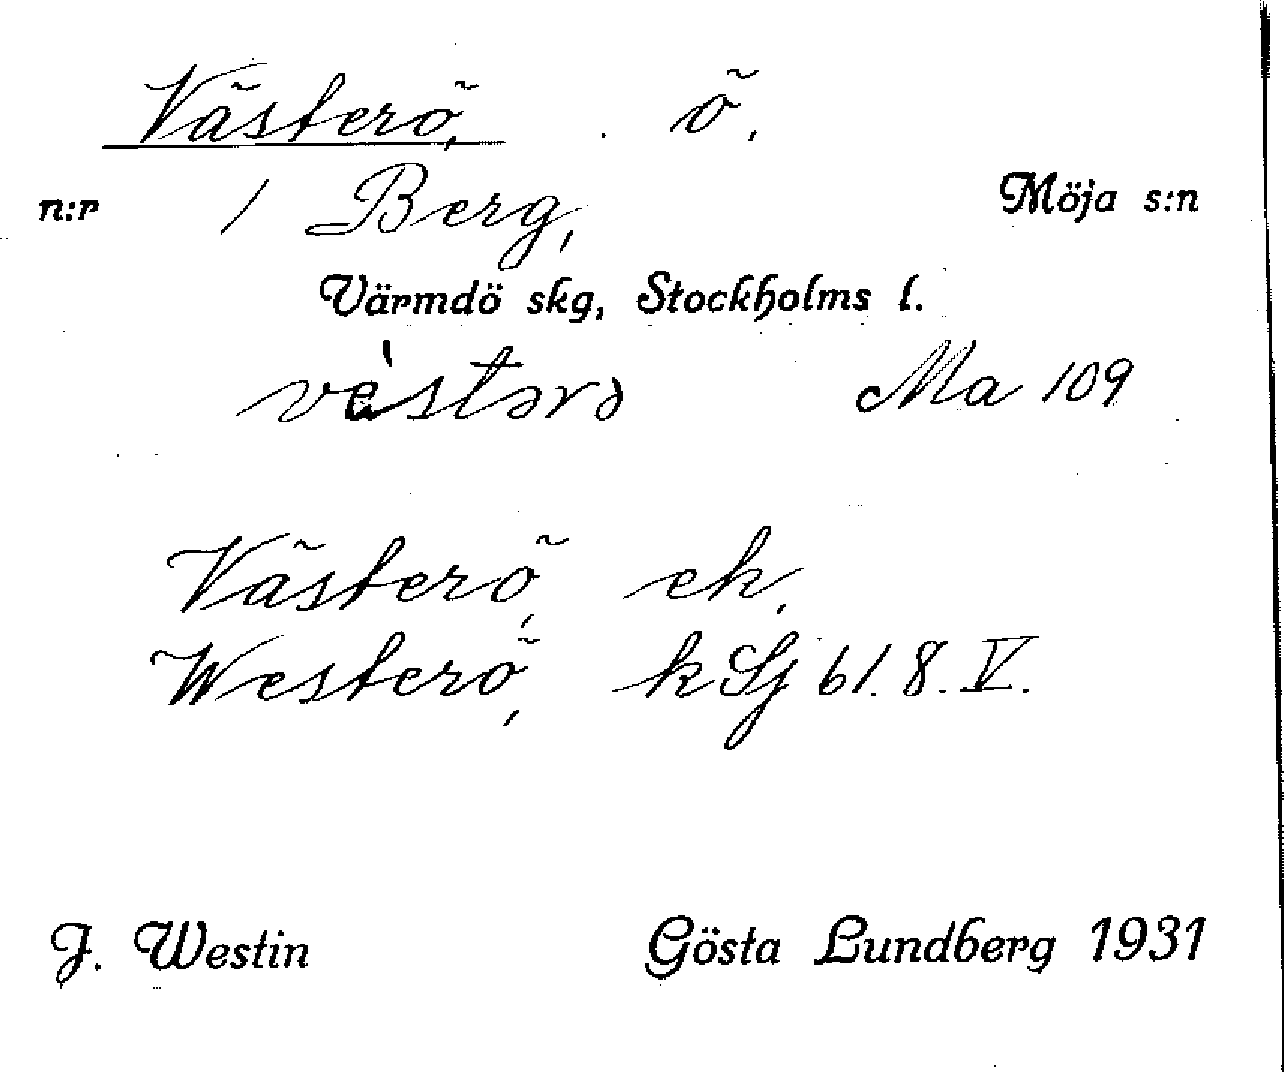 Västerö, ö,
n:r 1 Berg, Möja s:n
Värmdö skg, Stockholms l.
vèstərə Ma 109
Västerö, ek,
Westerö, k Sj 61.8.V.
J. Westin Gösta Lundberg 1931